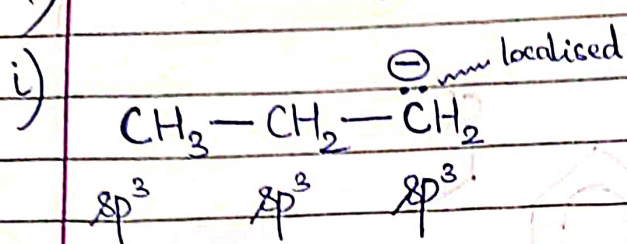 i)
⊖ localised
CH₃ — CH₂ — C̈H₂
sp³ sp³ sp³.